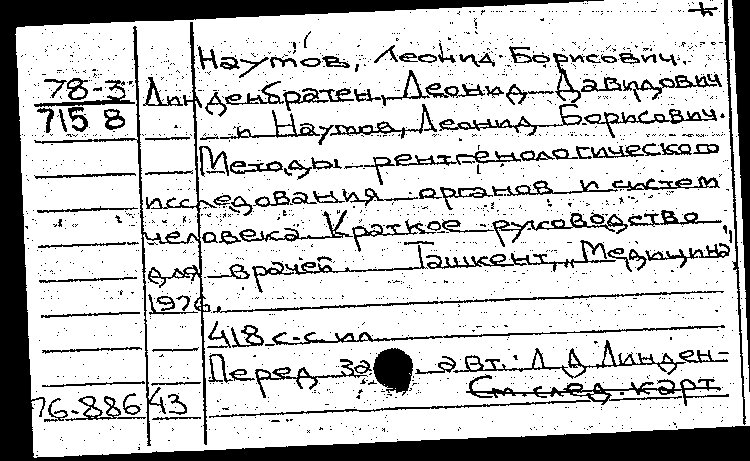 +
Наумов, Леонид Борисович.
78-3 Линденбратен, Леонид Давидович
715 8 и Наумов, Леонид Борисович.
Методы рентгенологического
исследования органов и систем
человека. Краткое руководство
для врачей. Ташкент, „Медицина",
1976.
418 с. с ил.
Перед за авт.: Л. Д. Линден-
См. след. карт.
76-88643